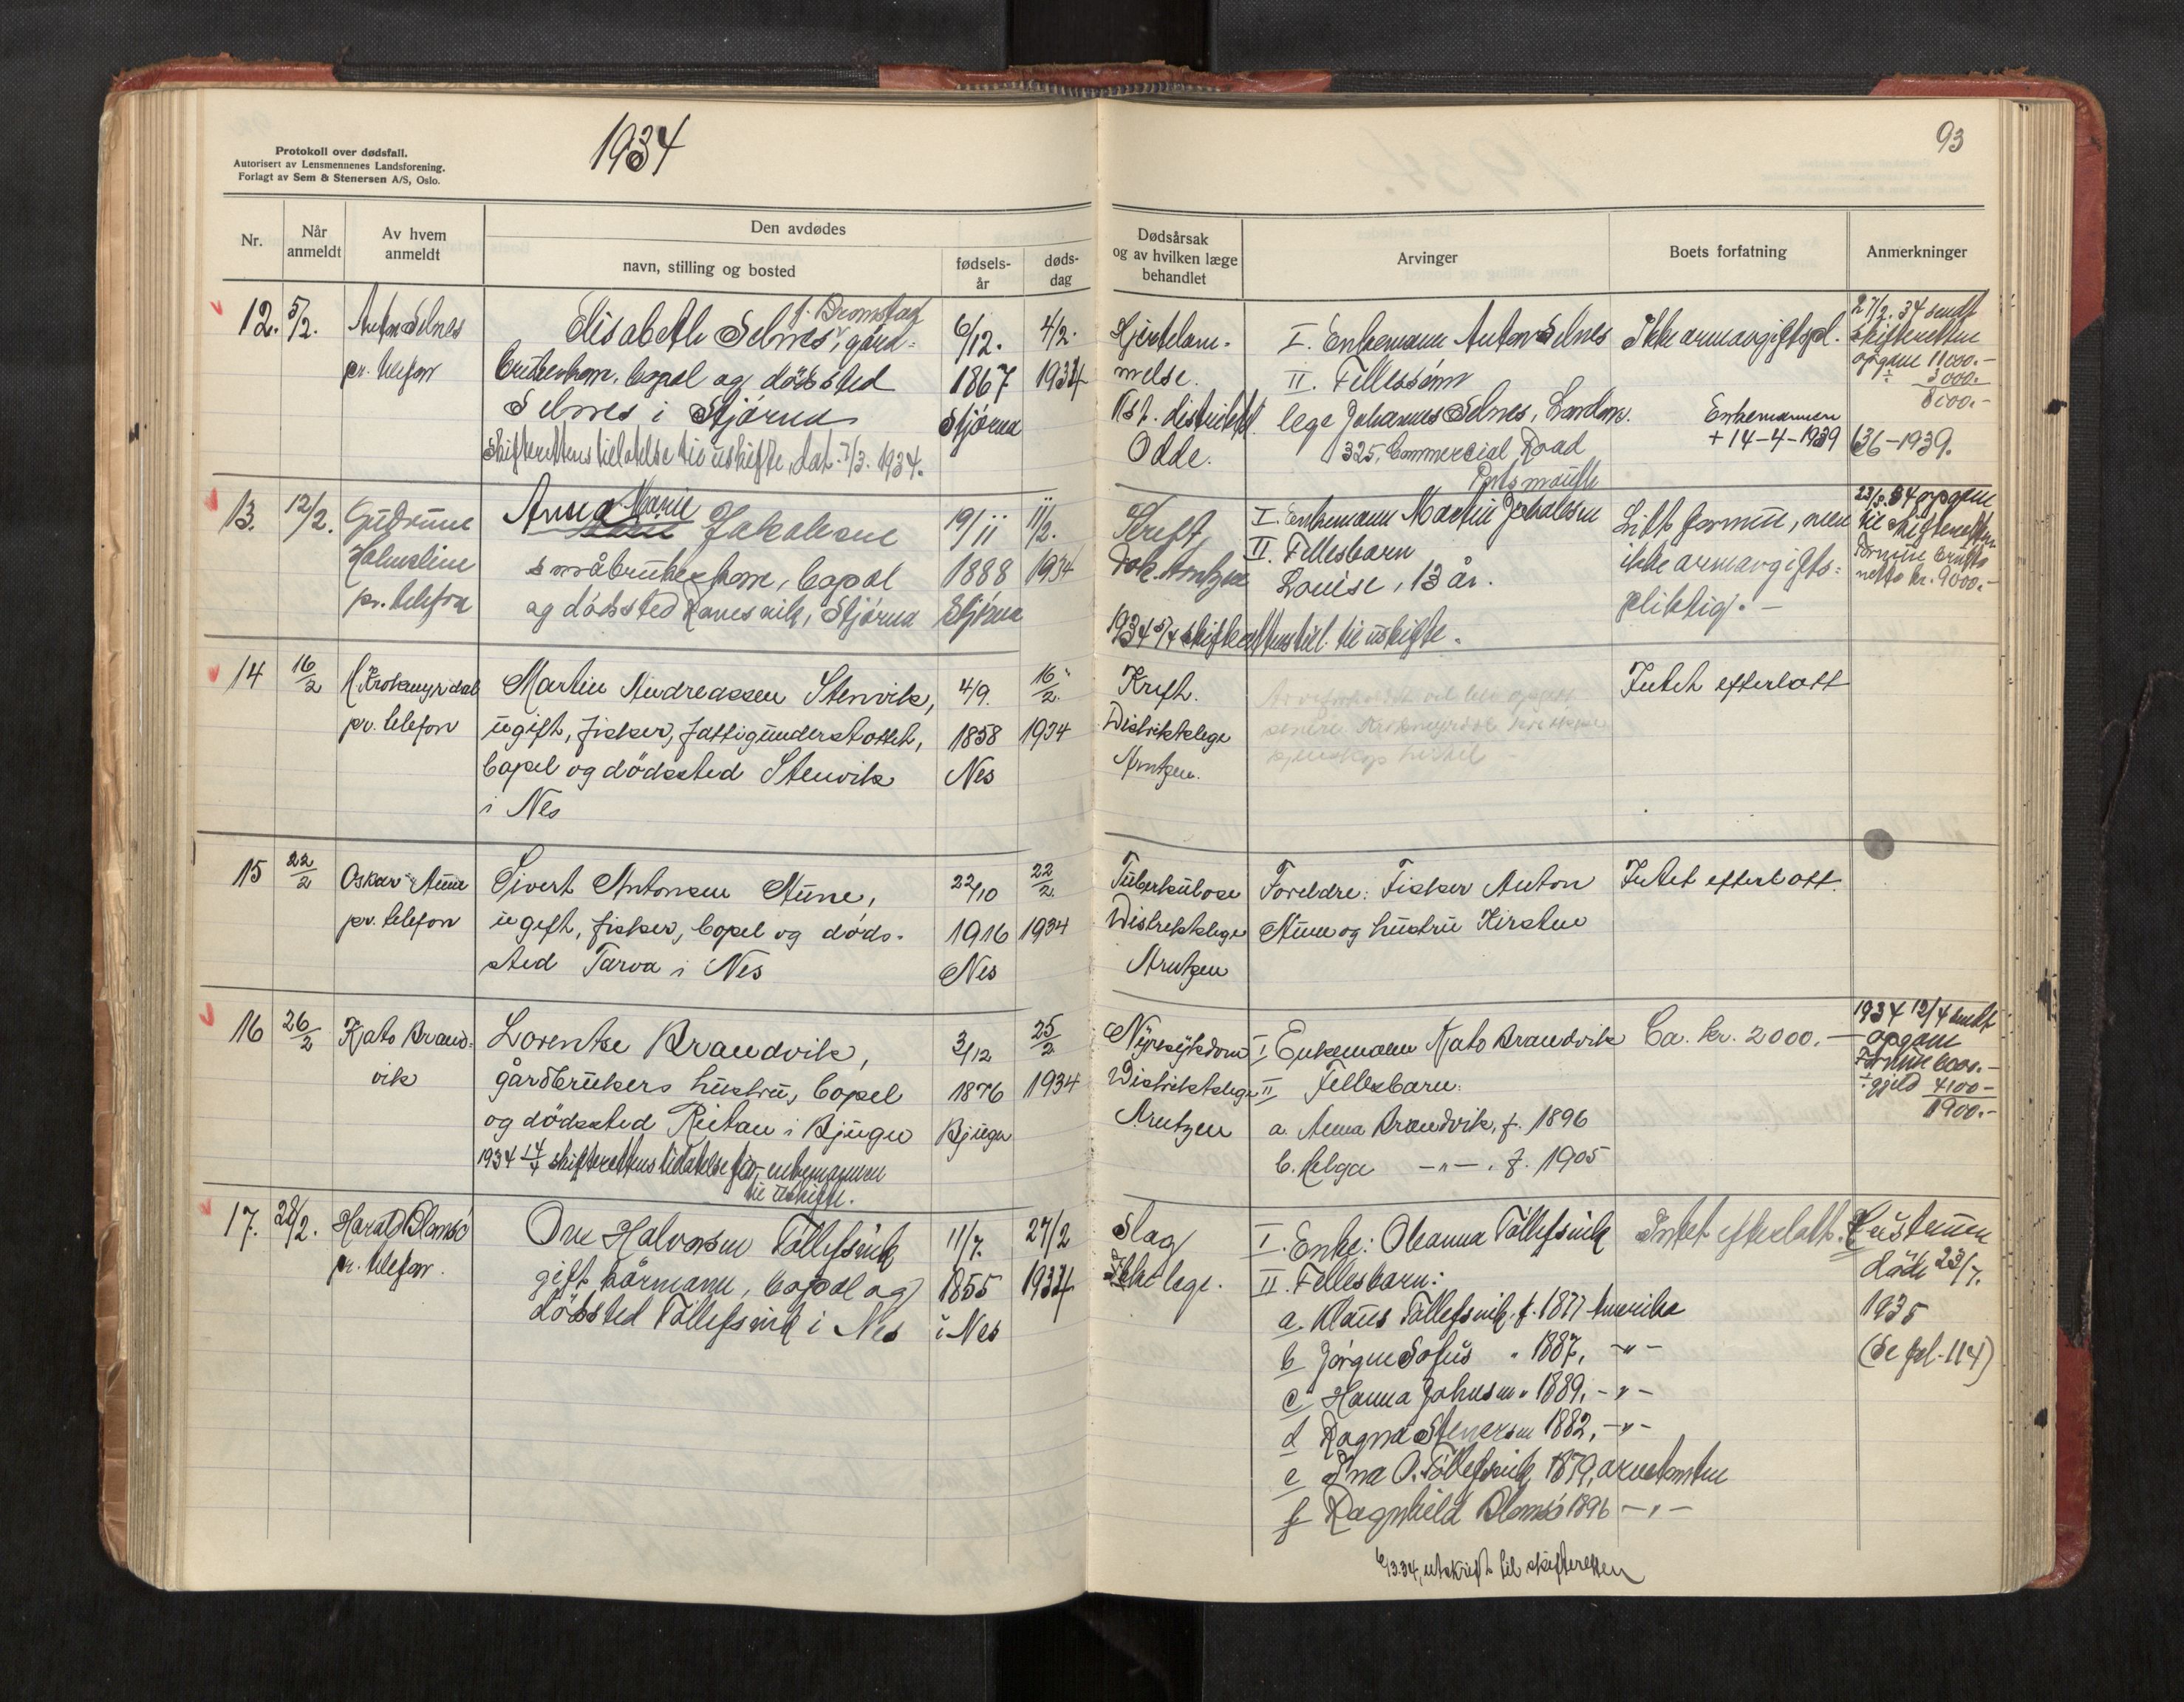 1934
93
Protokoll over dødsfall.
Autorisert av Lensmennenes Landsforening.
Forlagt av Sem & Stenersen A/S, Oslo.
Nr.
Når anmeldt
Av hvem anmeldt
Den avdødes
navn, stilling og bosted
fødsels-år
døds-dag
Dødsårsak
og av hvilken læge
behandlet
Arvinger
Boets forfatning
Anmerkninger
12. 5/2.
Anton Selnes
pr. telefon
f. Bromstad
Elisabeth Selnes, gård-
brukerkone, bopæl og dødssted
Selnes i Stjørna
Skifterettens tillatelse til uskifte, dat. 7/3. 1934.
6/12.
1867
Stjørna
4/2.
1934
Hjertelam-
melse.
Ast. distriktsl.
Odde.
I. Enkemann Anton Selnes
II. Fellessønn
lege Johannes Selnes, London.
325, Commercial Road
Portsmouth
Ikke arveavgiftspl.
Enkemannen
+ 14-4-1939
27/2.34 sendt
skifteretten
opgave 11000.-
÷ 3000.-
8000.-
136-1939.
13. 12/2.
Gudrun
Holmslim
pr. telefon
Anna Marie Jakobsen
småbrukerkone, bopæl
og dødssted Ramsvik, Stjørna
19/11
1888
Stjørna
11/2.
1934
Kreft,
Dok. Arntzen
1934 5/4 skifterettens till. til uskifte.
I. Enkemann Martin Jakobsen
II. Fellesbarn
Louise, 13 år.
Litt formue, men
ikke arveavgifts-
pliktig. -
23/3. 34 opgave
til skifteretten
Formue brutto
netto kr. 9000.-
14 16/2
H. Krokmyrdal
pr. telefon
Martin Andreassen Stenvik,
ugift, fisker, fattigunderstøttet,
bopel og dödssted Stenvik
i Nes
4/9.
1858
Nes
16/2.
1934
Kreft.
Distriktslege
Arntzen.
Intet efterlatt
15 22/2
Oskar Aune
pr. telefon
Sivert Antonsen Aune,
ugift, fisker, bopel og döds-
sted Tarva i Nes
22/10
1916
Nes
22/2.
1934
Tuberkulose
Distriktslege
Arntzen
Foreldre: Fisker Anton
Aune og hustru Kirsten
Intet efterlatt.
16 26/2
Kato Brand-
vik
Lorentse Brandvik,
gårdbrukers hustru, bopel
og dödssted Reitan i Bjugn
1934 14/4 skifterettens tillatelse for enkemannen
til uskifte.
3/12
1876
Bjugn
25/2
1934
Nyresykdom
Distriktslege
Arntzen
I Enkemann Kato Brandvik
II Fellesbarn:
a. Anna Brandvik, f. 1896
b. Helga -"- , f. 1905
Ca. kr. 2000.-
1934 12/4 sendt
opgave
Formue 6000.-
÷ gjeld 4100-
1900.-
17. 28/2.
Harald Blomsø
pr. telefon.
Ove Halvorsen Tøllefsvik
gift kårmann, bopæl og
dødssted Tøllefsvik i Nes
11/7.
1855
i Nes
27/2
1934
Slag
Ikke lege.
I. Enke: Oleanna Tøllefsvik
II. Fellesbarn:
a Klaus Tøllefsvik, f. 1877 Amerika
b Jørgen Sofus " 1887, -"-
c Hanna Johnsen " 1889, -"-
d Ragna Stenersen 1882, -"-
e Ina O. Tøllefsvik 1879, arvetomten
f Ragnhild Blomsø 1896 -"-
Intet efterlatt.
Hustruen
døde 23/7.
1935
(Se fol. 114)
6/3.34, utskrift til skifteretten